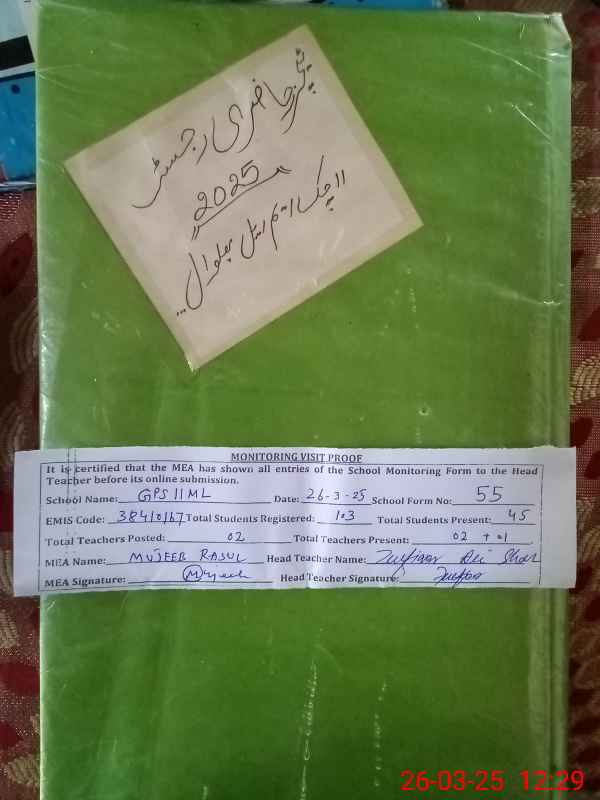 ٹیچر حاضری رجسٹر
2025
11 چک ایم ایل بھلوال
MONITORING VISIT PROOF
It is certified that the MEA has shown all entries of the School Monitoring Form to the Head
Teacher before its online submission.
School Name: GPS 11 ML Date: 26-3-25 School Form No: 55
EMIS Code: 38410167 Total Students Registered: 103 Total Students Present: 45
Total Teachers Posted: 02 Total Teachers Present: 02 + 01
MEA Name: MUJEEB RASUL Head Teacher Name:
MEA Signature: Mujeeb Head Teacher Signature:
26-03-25 12:29